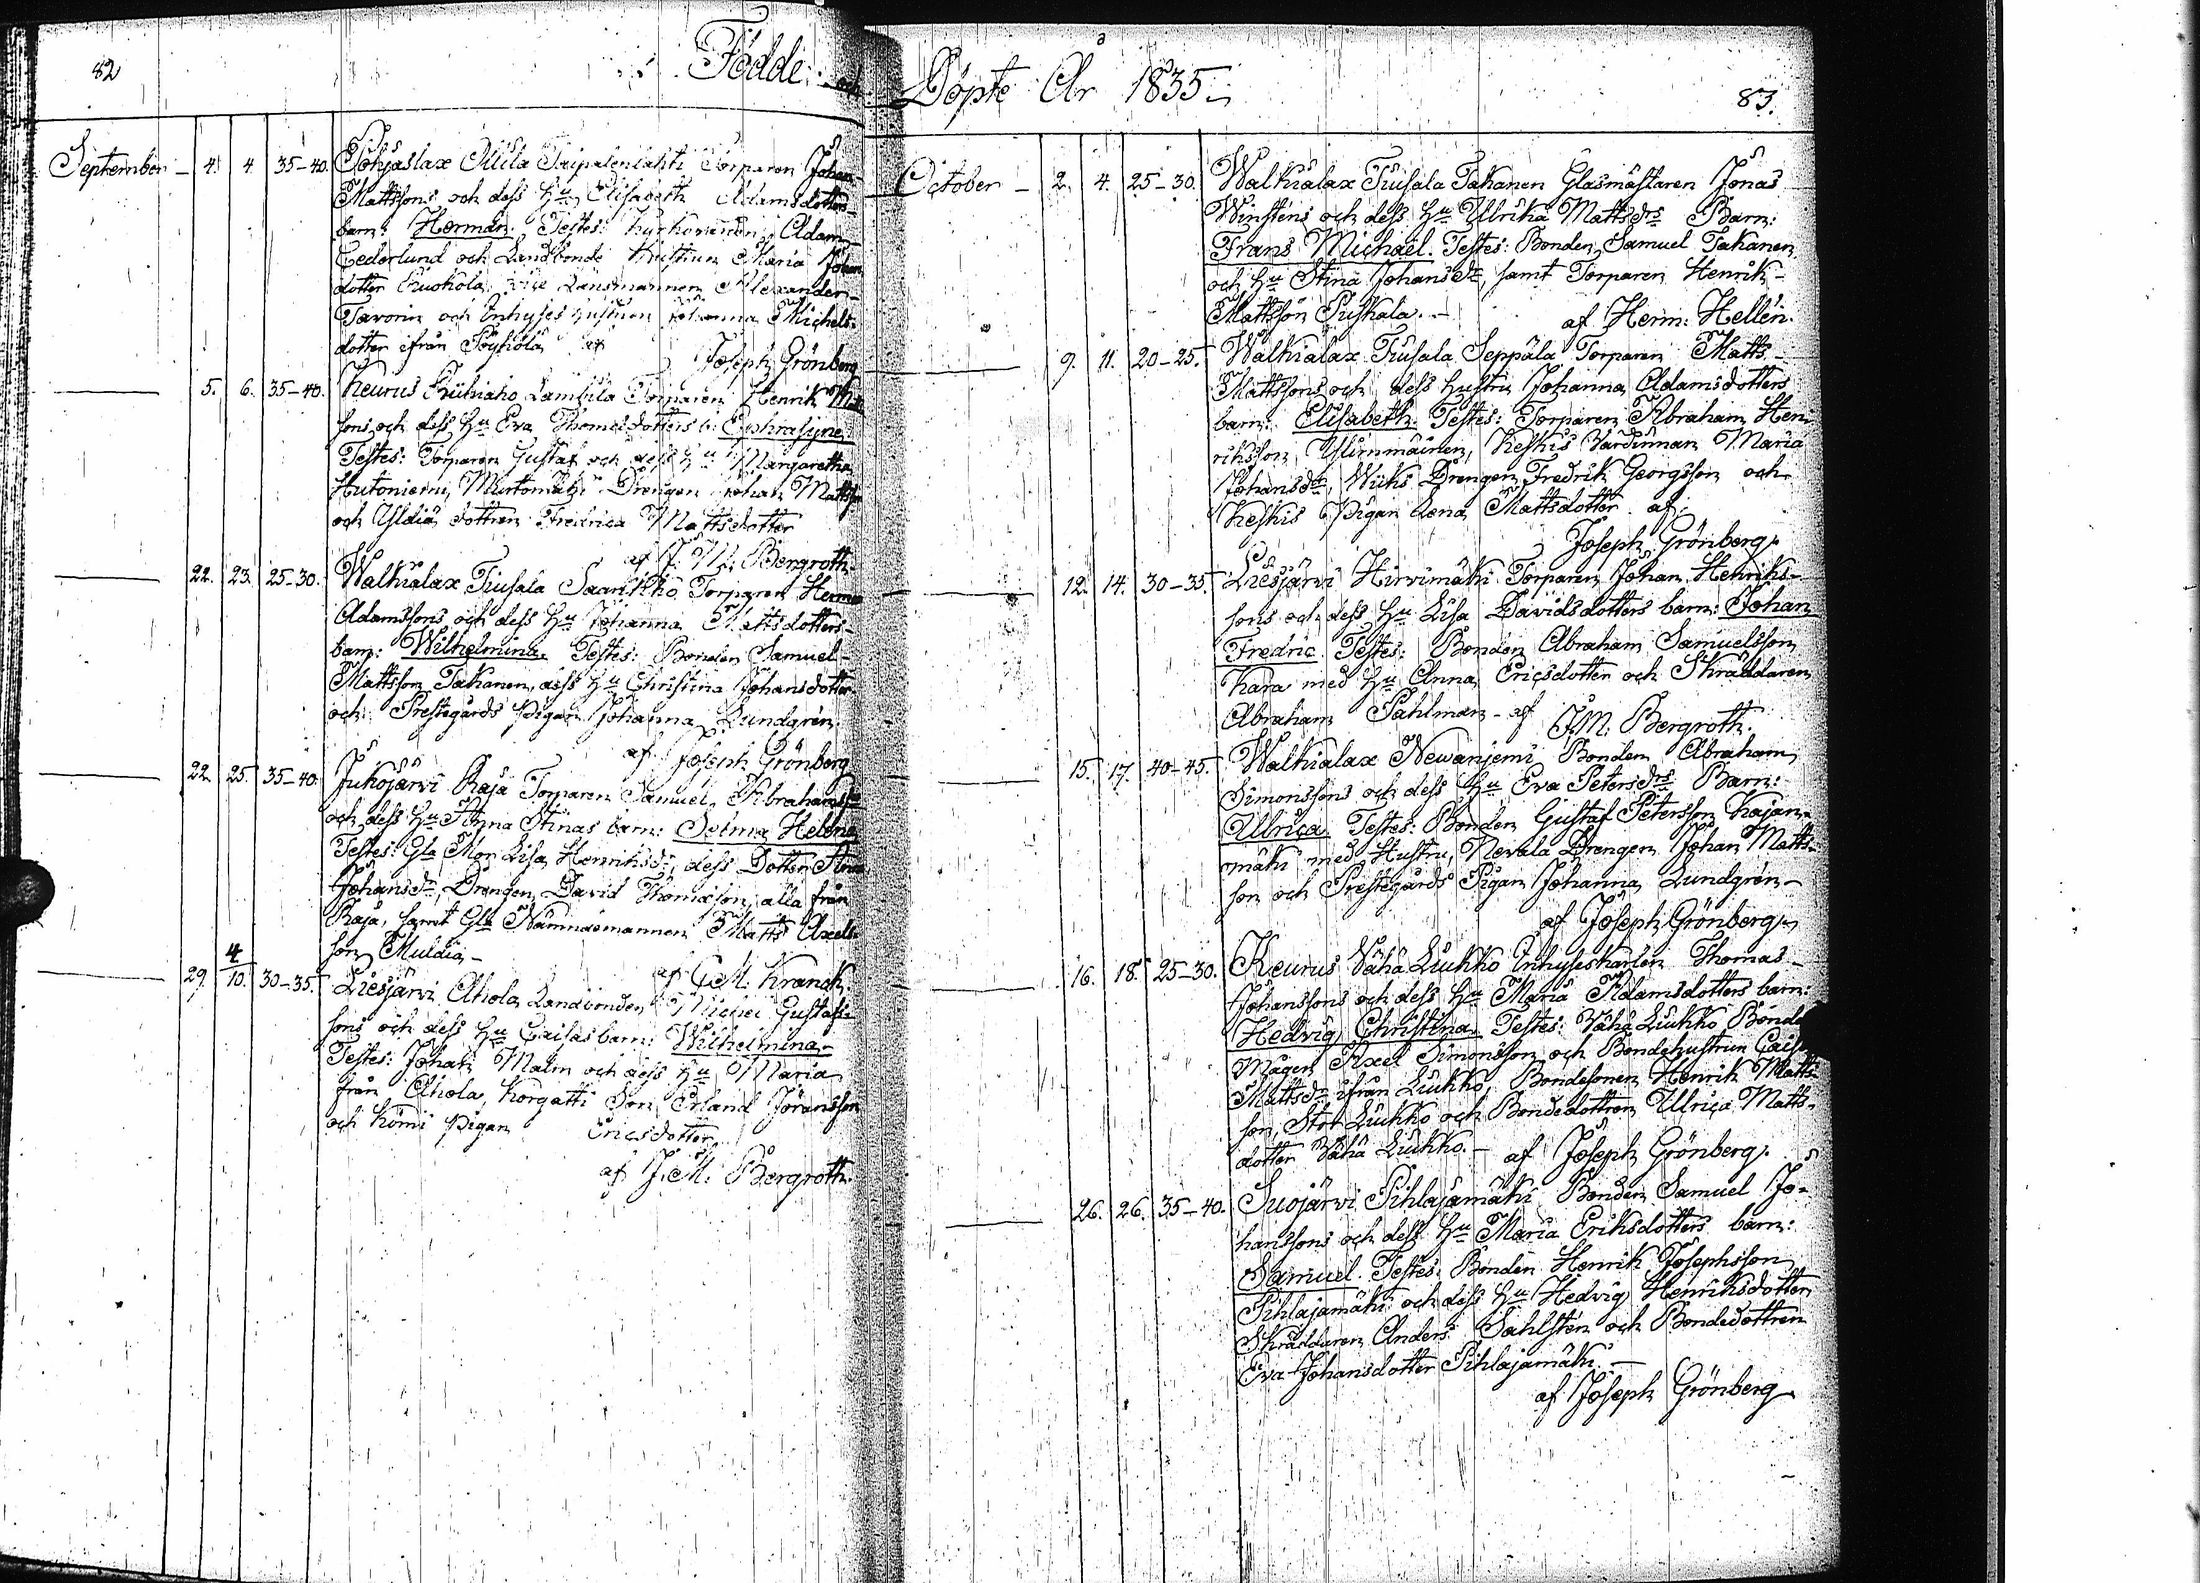 82
Födde och
September - 4. 4. 35-40. Pohjaslax Ollila Taipalenlahti Torparen Johan
Mattssons och dess Hu Elisabeth Adamsdotters
barn: Herman. Testes: Kyrkovärden Adam
Cederlund och Landbonde hustrun Maria Johans
dotter Ruokola, vice Länsmannen Alexander
Tavorin och Inhyses hustrun Johanna Michels-
dotter ifrån Pöyhölä af
Joseph Grönberg
5. 6. 35-40. Keurus Lambila Torparen Henrik Matts
sons och dess Hu Eva Thomasdotters b: Ephrosyne
Testes: Torparen Gustaf och dess Hu Margaretha
Hutoniemi, Murtomäki Drengen Johan Mattson
och Yldiä dottren Fredrica Mattsdotter
af J. M. Bergroth.
22. 23. 25-30. Walkialax Tiusala Saarikko Torparen Herman
Adamssons och dess Hu Johanna Mattsdotters
barn: Wilhelmina. Testes: Bonden Samuel
Mattsson Takanen, dess Hu Christina Johansdotter
och Prestegårds Pigan Johanna Lundgrén.
af Joseph Grönberg
22. 25. 35-40. Jukojärvi Raja Torparen Samuel Abrahamsons
och dess Hu Anna Stinas barn: Selma Helena
Testes: Gla Mor Lisa Henriksdr, dess Dotter Anna
Johansdr, Drengen David Thomæson, alla från
Raja, samt Gla Nämndemannen Matts Axels-
son Muldia-
af C. M. Kranck
29. 4/10. 30-35. Liesjärvi Ahola Landbonden Michel Gustafs-
sons och dess Hu Caisas barn: Wilhelmina.-
Testes: Johan Malm och dess Hu Maria
från Ahola, Korgatti Son Erland Jöransson
och Kömi Pigan Ericsdotter
af J. M. Bergroth.
Döpte År 1835.
83.
October - 2. 4. 25-30. Walkialax Tiusala Takanen Glasmästaren Jonas
Winsténs och dess Hu Ulrika Mattsdrs Barn:
Frans Michaël. Testes: Bonden Samuel Takanen
och Hu Stina Johansdr, samt Torparen Henrik
Mattsson Puskala. -
af Herm: Hellén.
9. 11. 20-25. Walkialax Tiusala Seppälä Torparen Matts
Mattssons och dess hustru Johanna Adamsdotters
barn: Elisabeth. Testes: Torparen Abraham Hen-
riksson Ylimmäinen, Keskis Värdinnan Maria
Johansdr, Wiiks Drengen Fredrik Georgsson och
Keskis Pigan Lena Mattsdotter. af
Joseph Grönberg.
12. 14. 30-35. Liesjärvi Hirvimäki Torparen Johan Henriks-
sons och dess Hu Lisa Davidsdotters barn: Johan
Fredric. Testes: Bonden Abraham Samuelsson
Kara med Hu Anna Ericsdotter och Skräddaren
Abraham Pahlman - af J. M. Bergroth.
15. 17. 40-45. Walkialax Newanjemi Bonden Abraham
Simonssons och dess Hu Eva Petersdrs Barn:
Ulrica. Testes: Bonden Gustaf Petersson Kajan-
mäki med Hustru, Nevala Drengen Johan Matts-
son och Prestegårds Pigan Johanna Lundgrén
af Joseph Grönberg.
16. 18. 25-30. Keurus Vähä Liukko Inhyseskarlen Thomas
Johanssons och dess Hu Maria Adamsdotters barn:
Hedvig Christina. Testes: Vähä Liukko Bonde
Mågen Axel Simonsson och Bondehustrun Caisa
Mattsdr ifrån Liukko, Bondesonen Henrik Matts-
son, Stor Liukko och Bondedottren Ulrica Matts-
dotter Vähä Liukko. - af Joseph Grönberg.
26. 26. 35-40. Suojärvi Pihlajamäki Bonden Samuel Jo-
hanssons och dess Hu Maria Eriksdotters barn:
Samuel. Testes: Bonden Henrik Josephsson
Pihlajamäki och dess Hu Hedvig Henriksdotter
Skräddaren Anders Sahlsten och Bondedottren
Eva Johansdotter Pihlajamäki. -
af Joseph Grönberg